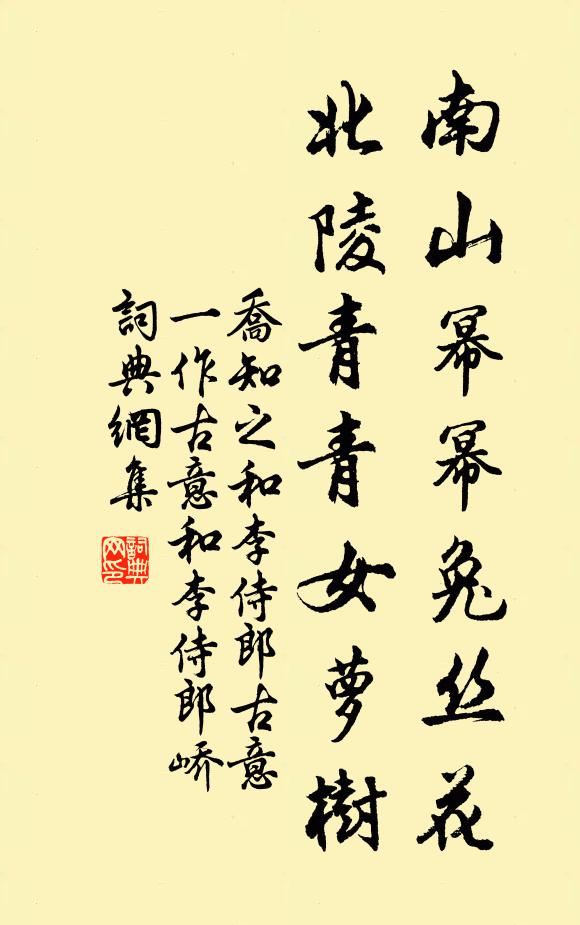 南山幂幂兔丝花
北陵青青女萝樹
喬知之和李侍郎古意
一作古意和李侍郎嶠
詞典網集
詞典
网印